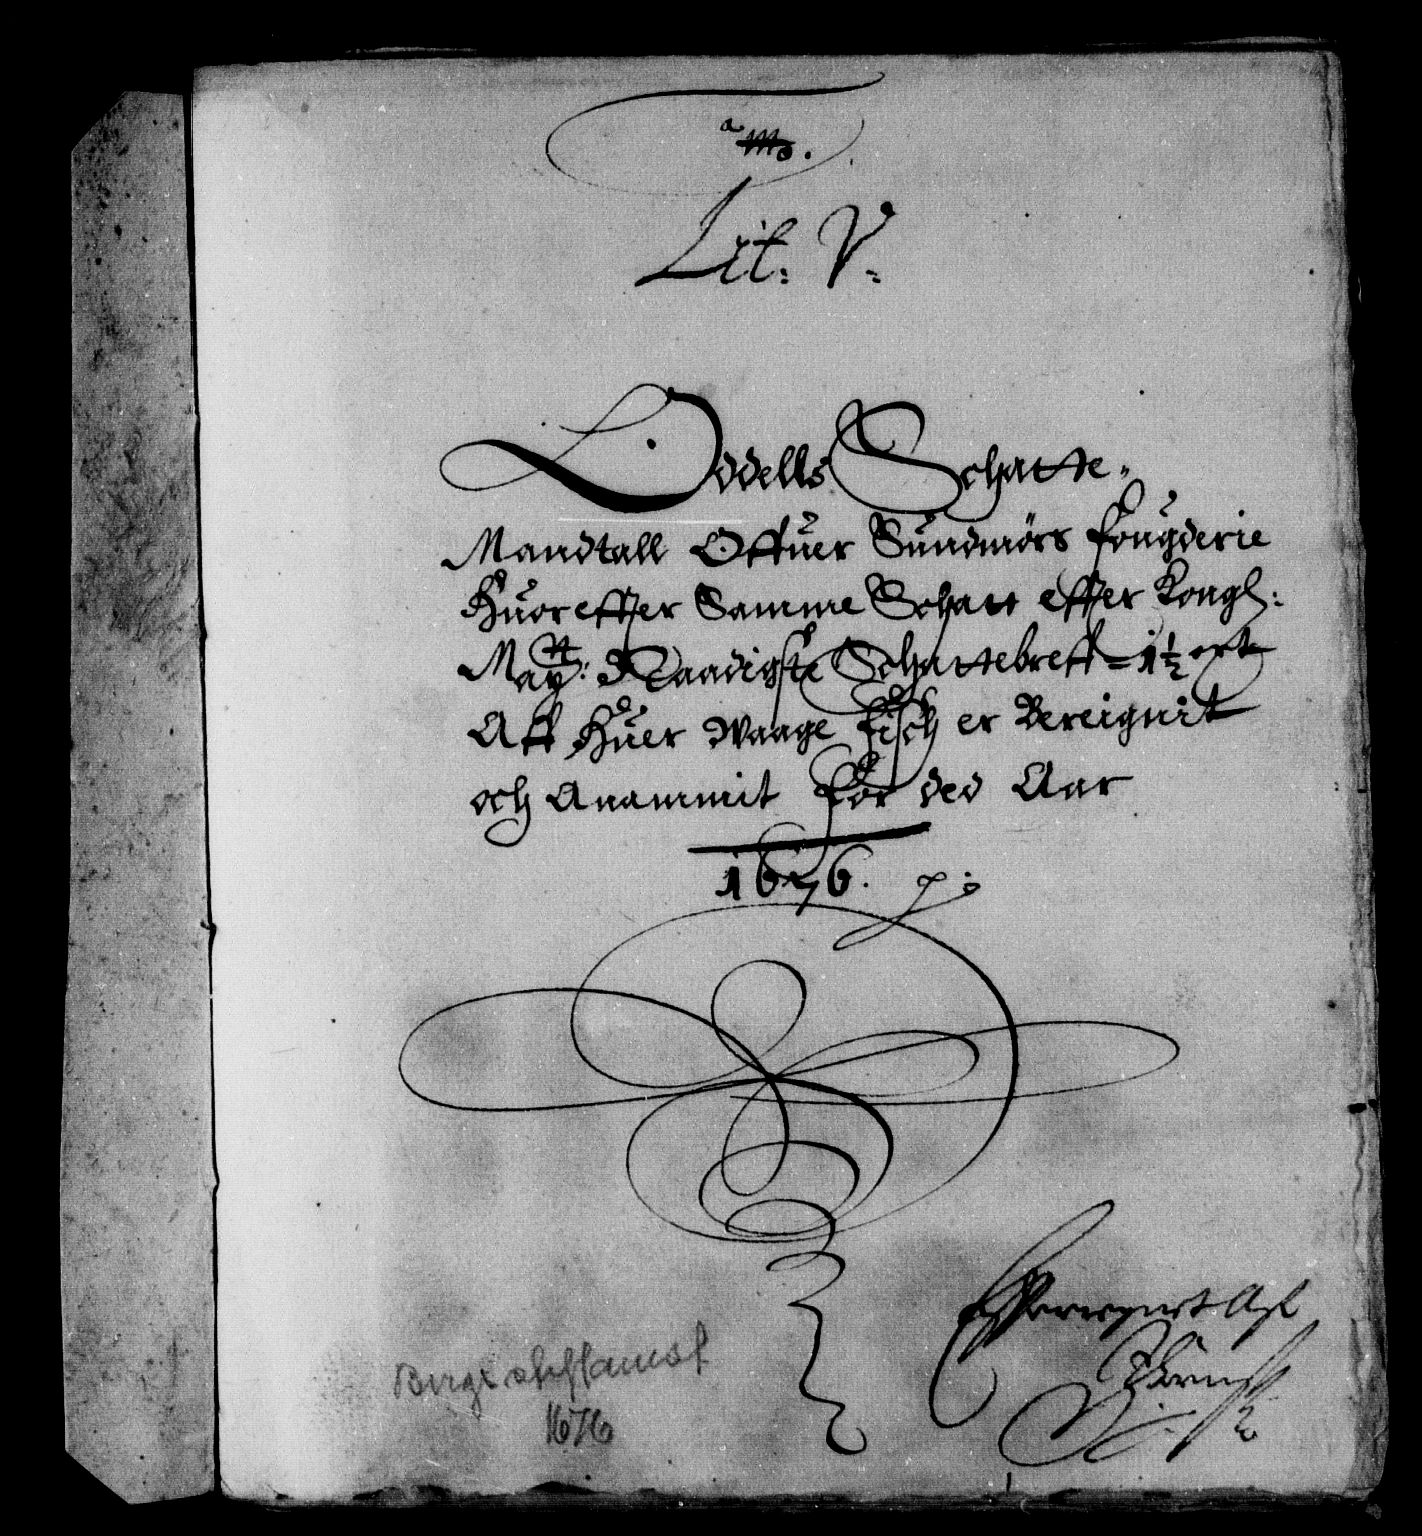 Lit: V:
Oddells Schatte-
Mandtall Offuer Sundmörs fougderie
Huorefter Samme Schatt efter Kongl:
May:tt Naadigste Schattebreff = 1½ ort
Aff Huer Waage fisch er Bereignit
och Anammit for ded Aar
1676.
Bergs stiftamst
1676